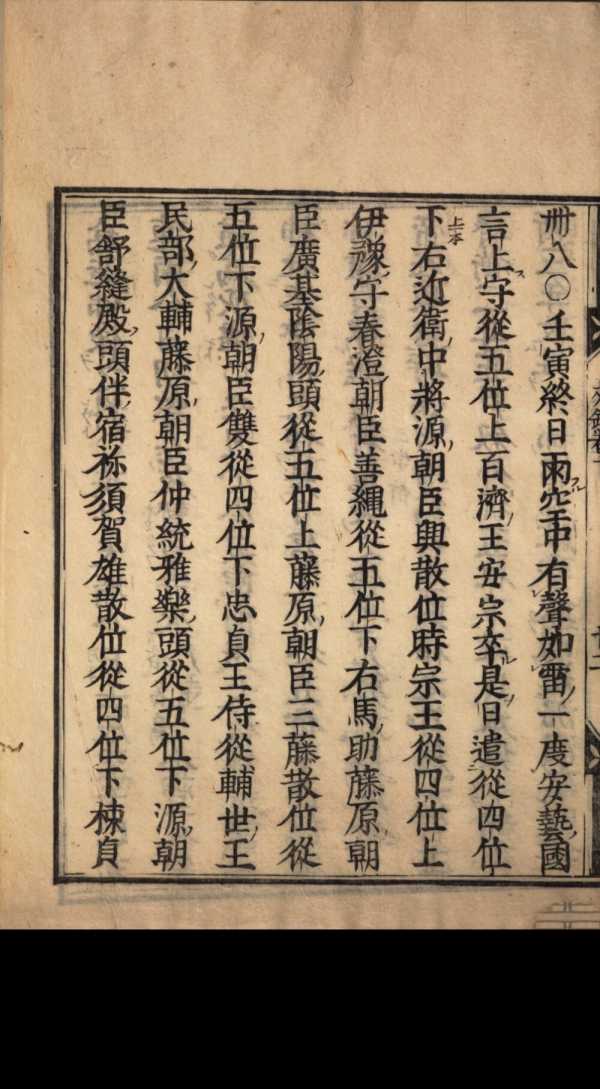 卌八〇壬寅終日雨空中有聲如雷一度安藝國
言上守從五位上百濟王安宗卒是日遣從四位
下右近衛中將源朝臣興散位時宗王從四位上
伊豫守春澄朝臣善繩從五位下右馬助藤原朝
臣廣基陰陽頭從五位上藤原朝臣三藤散位從
五位下源朝臣雙從四位下忠貞王侍從輔世王
民部大輔藤原朝臣仲統雅樂頭從五位下源朝
臣舒縫殿頭伴宿祢須賀雄散位從四位下棟貞